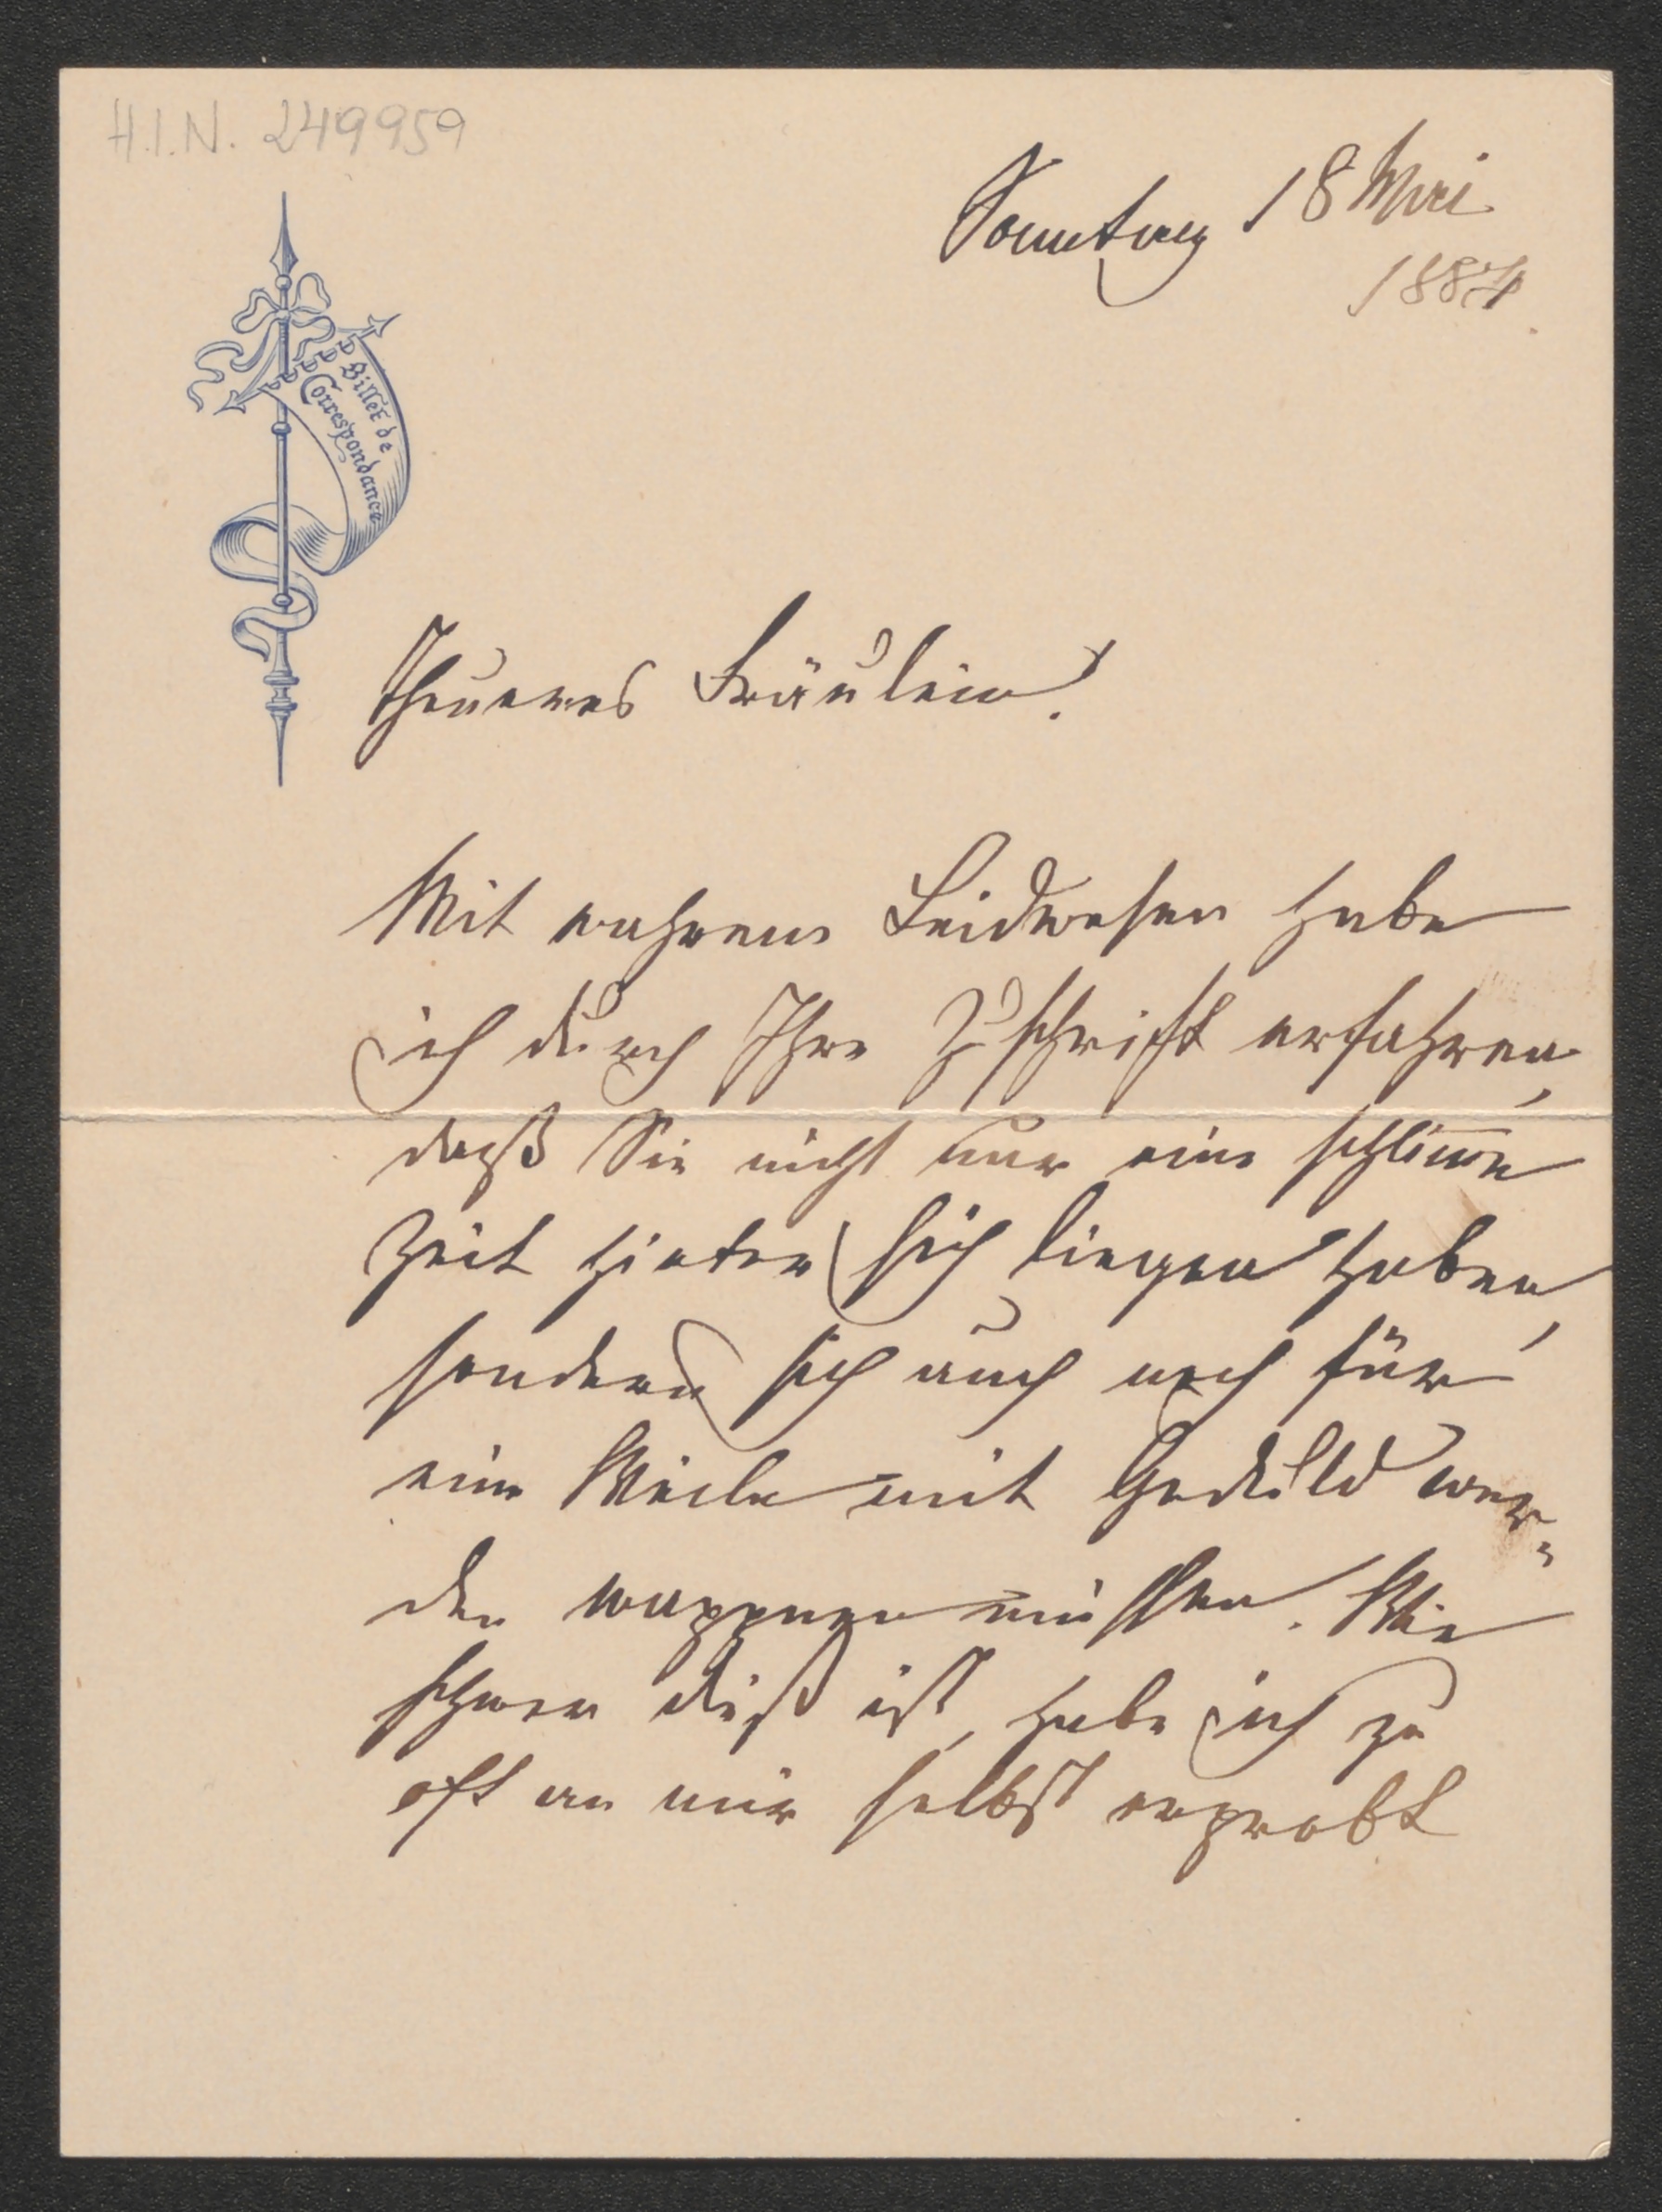 H.I.N. 249959
Sonntag 18 Mai
1884.
Billet de
Correspondance
Theueres Fräulein!
Mit wahrem Leidwesen habe
ich durch Ihre Zuschrift erfahren,
daß Sie nicht nur eine schlim̅e
Zeit hinter sich liegen haben,
sondern sich auch noch für
eine Weile mit Geduld wer-
den wappnen müssen. Wie
schwer dieß ist, habe ich zu
oft an mir selbst erprobt